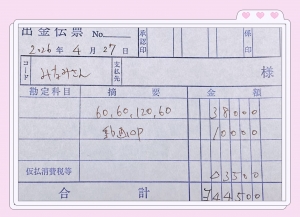 出金伝票 No. 承認印 係印
2026年 4月 27日
コード みなみさん 支払先 様
勘定科目 摘要 金額
60,60,120,60 38000
動画OP 10000
仮払消費税等 △3500
合計 ¥44500